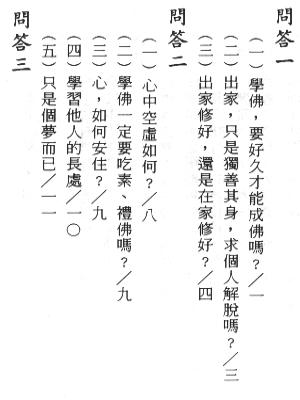 問答一
（一）學佛，要好久才能成佛嗎？／一
（二）出家，只是獨善其身，求個人解脫嗎？／三
（三）出家修好，還是在家修好？／四
問答二
（一）心中空虛如何？／八
（二）學佛一定要吃素、禮佛嗎？／九
（三）心，如何安住？／九
（四）學習他人的長處／一〇
（五）只是個夢而已／一一
問答三